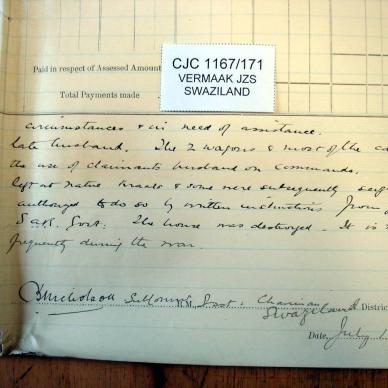 CJC 1167/171
VERMAAK JZS
SWAZILAND
Paid in respect of Assessed Amount
Total Payments made
circumstances & in need of assistance.
late husband. The 2 wagons & most of the
the use of claimants husband on commando.
left at native kraals & some were subsequently
authorized to do so by written instructions from
S.A.R. Govt. The house was destroyed. It is
frequently during the war.
Chairman
Swaziland District
Date, July